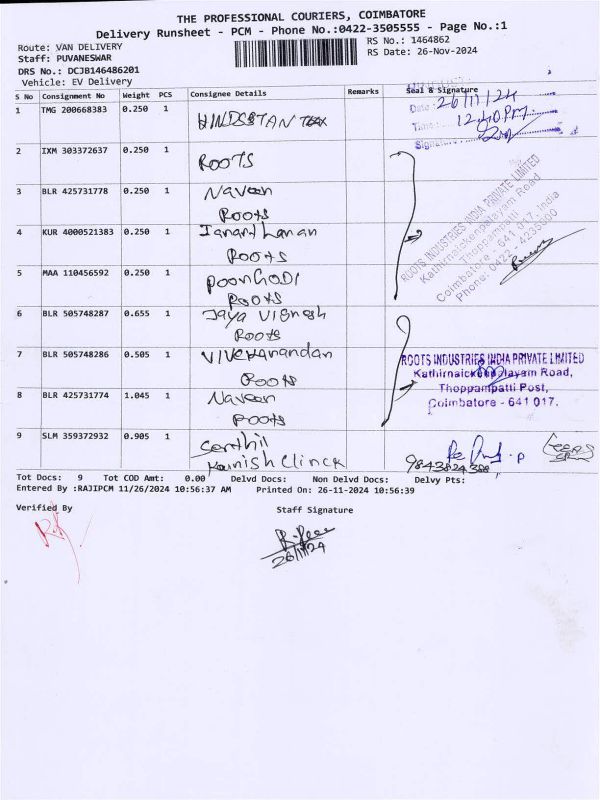 THE PROFESSIONAL COURIERS, COIMBATORE
Delivery Runsheet - PCM - Phone No.:0422-3505555 - Page No.:1
Route: VAN DELIVERY
RS No.: 1464862
Staff: PUVANESWAR
RS Date: 26-Nov-2024
DRS No.: DCJB146486201
Vehicle: EV Delivery
S No Consignment No Weight PCS Consignee Details Remarks Seal & Signature
1 TMG 200668383 0.250 1 HINDSTAN
Date: 26/11/24
Time: 12.40 pm
Signature
2 IXM 303372637 0.250 1 ROOTS
3 BLR 425731778 0.250 1 Naveen
ROOTS
4 KUR 4000521383 0.250 1
Roots
5 MAA 110456592 0.250 1 POONGODI
ROOTS
ROOTS INDUSTRIES INDIA PRIVATE LIMITED
Kathirnaickenpalayam Road
Thoppampatti
Coimbatore - 641 017. India
Phone: 0422 - 4235500
6 BLR 505748287 0.655 1 Jaya Vignesh
Roots
7 BLR 505748286 0.505 1 Vivekanandan
Roots
8 BLR 425731774 1.045 1 Naveen
Roots
ROOTS INDUSTRIES INDIA PRIVATE LIMITED
Kathirnaickenpalayam Road,
Thoppampatti Post,
Coimbatore - 641 017.
9 SLM 359372932 0.905 1 Senthil
Kanish Clinck
9843824388
Tot Docs: 9 Tot COD Amt: 0.00 Delvd Docs: Non Delvd Docs: Delvy Pts:
Entered By :RAJIPCM 11/26/2024 10:56:37 AM Printed On: 26-11-2024 10:56:39
Verified By Staff Signature
26/11/24